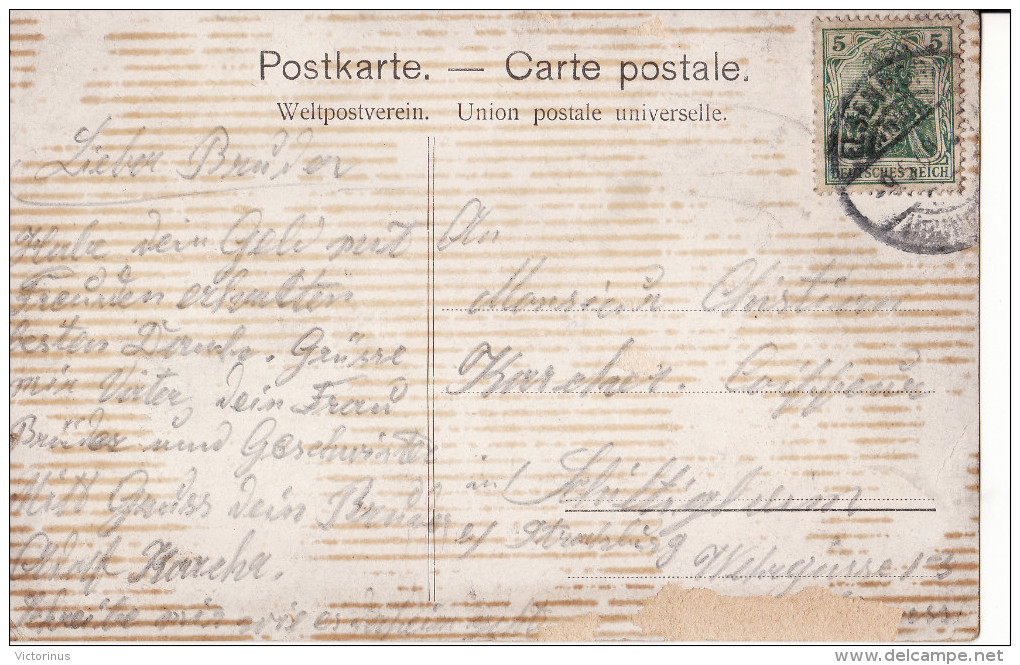 Postkarte. — Carte postale.
Weltpostverein. Union postale universelle.
5 5
DEUTSCHES REICH
Lieber Bruder
Habe dein Geld mit
Freuden erhalten
besten Danke. Grüsse
mir Vater dein Frau
Brüder und Geschwister
Mitt Gruss dein Bruder
Adolf Karcher.
Schreibe mir wie es daheim geht
An
Monsieur Christian
Karcher. Coiffeur
in Schiltigheim
b/ Strassburg
13
Victorinus
delcampe.net